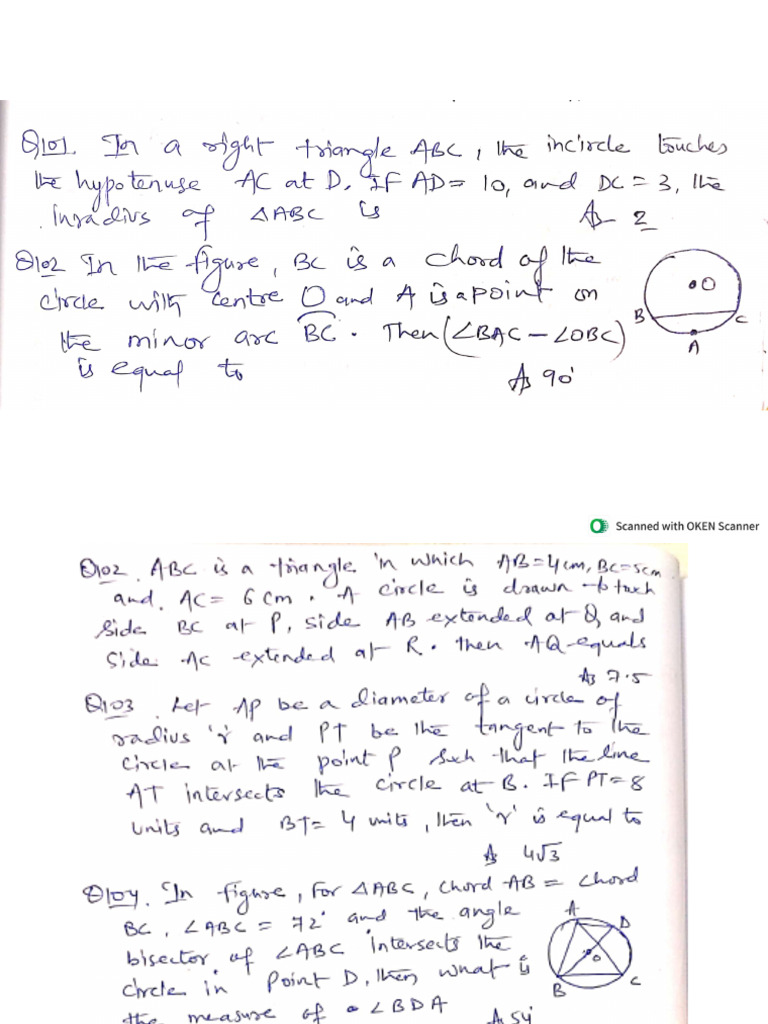 Q101. In a right triangle ABC, the incircle touches
the hypotenuse AC at D. IF AD= 10, and DC = 3, the
inradius of △ABC is
As 2
Q102 In the figure, BC is a chord of the
circle with centre O and A is a point on
the minor arc BC. Then (∠BAC - ∠OBC)
is equal to
As 90°
O
B
C
A
Scanned with OKEN Scanner
Q102. ABC is a triangle in which AB=4cm, BC=5cm
and. AC= 6 cm. A circle is drawn to touch
side BC at P, side AB extended at Q and
side AC extended at R. then AQ equals
As 7.5
Q103. Let AP be a diameter of a circle of
radius 'r' and PT be the tangent to the
circle at the point P such that the line
AT intersects the circle at B. IF PT=8
units and BT= 4 units, then 'r' is equal to
As 4√3
Q104. In figure, for △ABC, chord AB = chord
BC, ∠ABC = 72° and the angle
bisector of ∠ABC intersects the
circle in point D, then what is
the measure of ∠BDA
A
D
O
B
C
As 54°